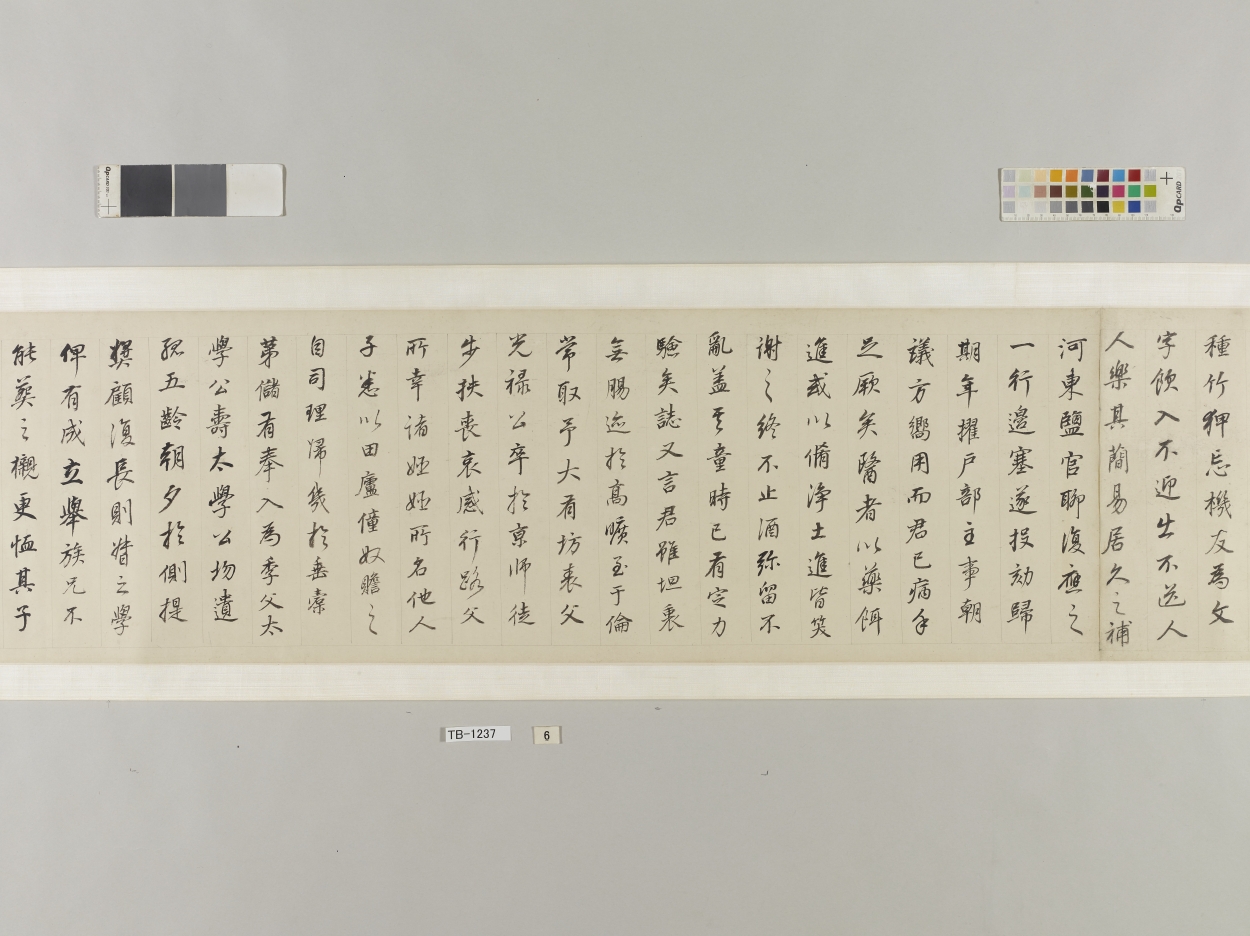 種竹狎忘機友為文
字飲入不迎出不送人
人樂其蕳易居久之補
河東鹽官聊復應之
一行邊塞遂投劾歸
期年擢戶部主事朝
議方嚮用而君已病手
足厥矣醫者以藥餌
進或以脩淨土進皆笑
謝之終不止酒弥留不
亂盖其童時已有定力
驗矣誌又言君雖坦衷
無賜迹於高曠至于倫
常取予大有坊表父
光禄公卒於京師徒
步挾喪哀感行路父
所幸諸姬姬所名他人
子悉以田廬僮奴贍之
自司理歸幾於垂橐
苐儲有奉入為季父太
學公壽太學公均遺
孤五齡朝夕於側提
獎顧復長則督之學
俾有成立舉族兄不
能葬之櫬更恤其子
TB-1237
6
QPCARD
QPCARD